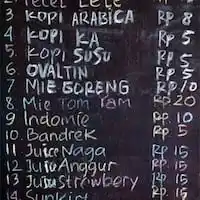 2. Pecel Lele
3 KOPI ARABICA Rp 8
4 KOPI KA Rp 5
5. KOPI SUSU Rp 5
6 OVALTIN Rp 5
7 MIE GORENG Rp 10
8 Mie Tom Yam Rp 20
9 Indomie Rp. 10
10 Bandrek Rp 5
11 Juice Naga Rp 15
12 Juice Anggur Rp 15
13 Juice Strawbery Rp. 15
14 Sunkist Rp 15